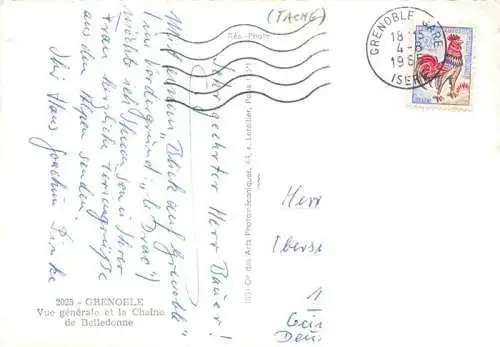 (TACHÉ)
GRENOBLE GARE
18
4-8
196
ISERE
Réal-Photo
Sehr geehrter Herr Bauer!
Mit diesem „Blick auf Grenoble"
(im Vordergrund: „le Drac")
möchte ich Ihnen und Ihrer
Frau herzliche Feriengrüße
aus den Alpen senden.
Ihr Hans Joachim
Herr
Obers
2025 - GRENOBLE
Vue générale et la Chaîne
de Belledonne
Cie des Arts Photomécaniques, 44, r. Letellier, Paris